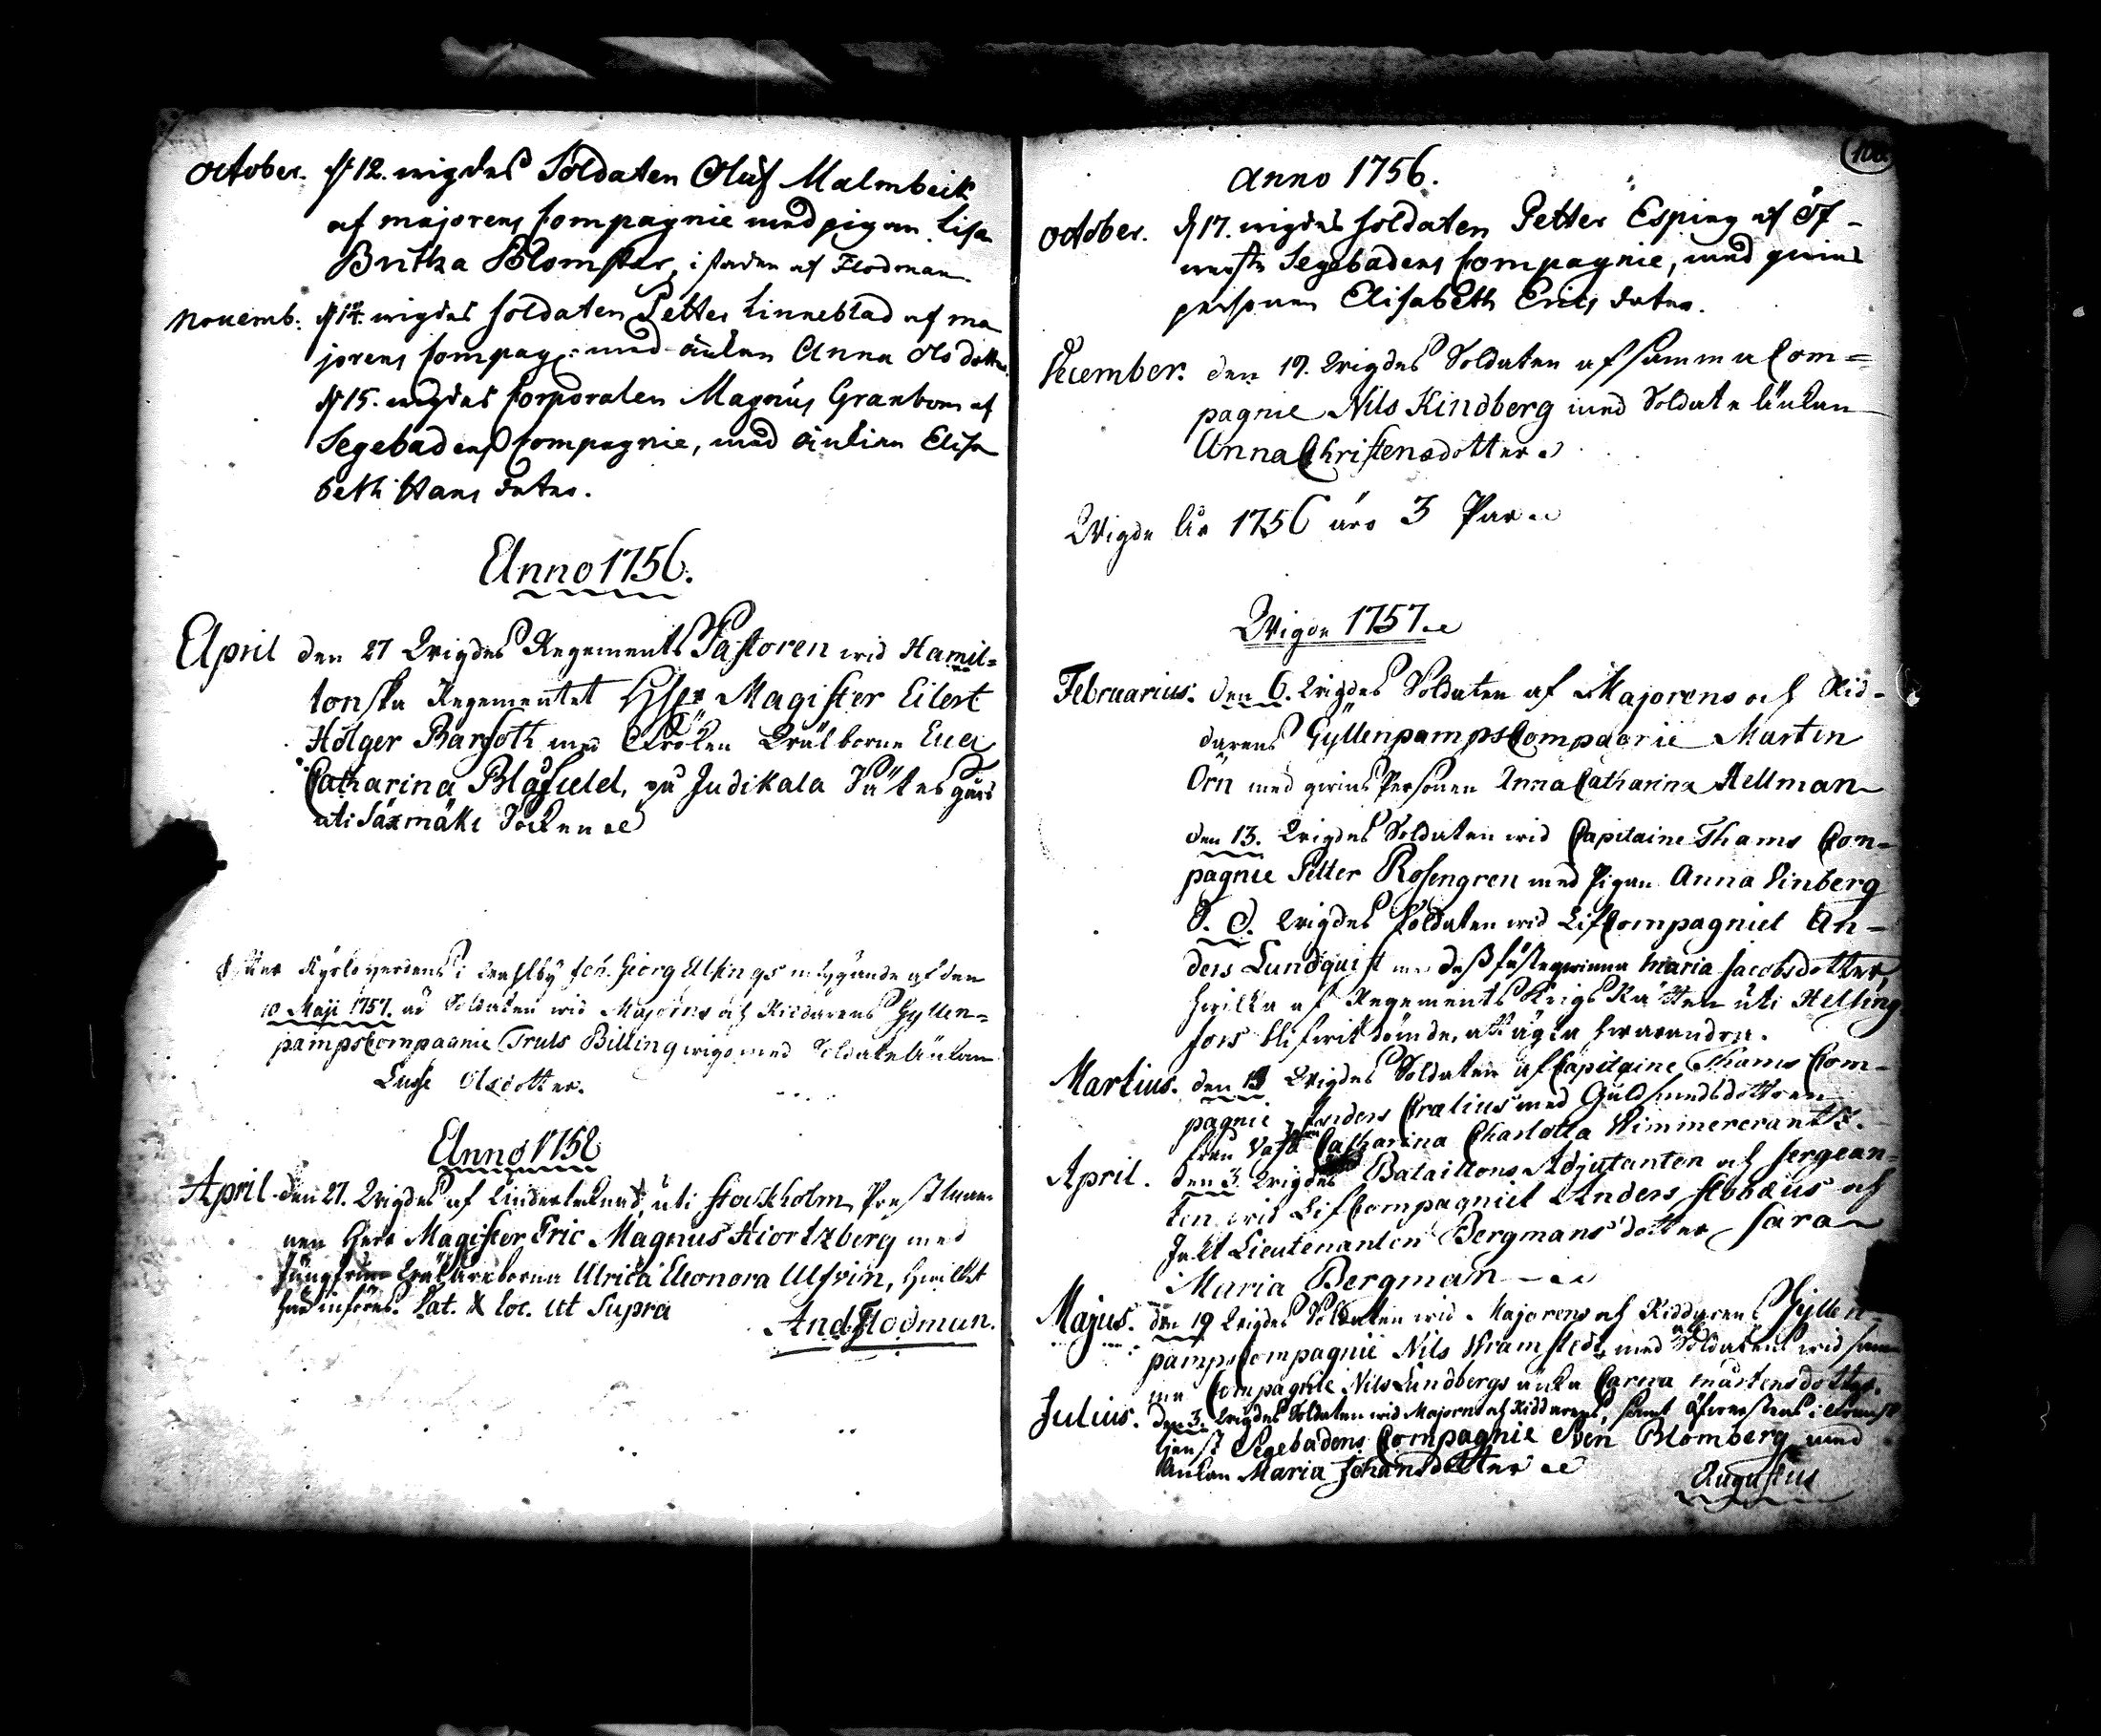 October. d 12. wigdes Soldaten Oluf Malmbeck
af majorens Compagnie med pigan Lisa
Britha Blomster, i staden af Flodman
Novemb: d 14. wigdes soldaten Petter Linneblad af ma
jorens Compag: med änkan Anna Olsdotter
d 15. wigdes Corporalen Magnus Granbom af
Segebadens Compagnie, med änkian Elisa
beth Hans dotter.
Anno 1756.
April den 27 Wigdes Regements Pastoren wid Hamil=
tonska Regementet Magister Eilert
Holger Barfoth med Fröken Wälborne Eva
Catharina Blåfield, på Judikala Sätesgård
uti Säxmäki Socken
Kyrkoherdens i Joh. Georg Ulfings af den
10 Maji 1757. är Soldaten wid Majorens och Riddarens Gyllen=
pamps Compagnie Truls Billing wigd med Soldate Änkan
Lusse Olsdotter.
Anno 1758
April den 27. Wigdes af Undertecknad, uti Stockholm, Prestman-
nen Herr Magister Eric Magnus Hiortzberg med
Jungfrun Ulrica Eleonora Ulfvin, hwilket
här införes. Dat. & loc. ut Supra
And. Flodman.
Anno 1756.
October. d 17. wigdes soldaten Petter Esping af Öf-
werste Segebadens Compagnie, med qwins
personen Elisabeth Erics dotter.
December. den 19. Wigdes Soldaten af samma Com=
pagnie Nils Kindberg med Soldate änkan
Anna Christensdotter
Wigde År 1756 äro 3 Par
Wigde 1757.
Februarius. den 6. Wigdes Soldaten af Majorens och Rid-
darens Gyllenpamps Compagnie Martin
Örn med qwins Personen Anna Catharina Hellman
den 13. Wigdes Soldaten wid Capitaine Thams Com-
pagnie Petter Rosengren med Pigan Anna Winberg
D. O. Wigdes Soldaten wid Lif Compagniet An-
ders Lundquist med dess fästeqwinna Maria Jacobsdotter,
hwilka af Regements Krigs Rätten uti Helsing
fors blifwit dömde, att ägta hwarandra.
Martius. den 13 Wigdes Soldaten af Capitaine Thams Com-
pagnie Anders Cralius med Guldsmedsdottren
från Vasa Catharina Charlotta Wimmercrantz.
April. den 3 Wigdes Bataillons Adjutanten och Sergean-
ten wid Lif Compagniet Anders Stobæus och
Lieutenanten Bergmans dotter Sara
Maria Bergman
Majus. den 19 Wigdes Soldaten wid Majorens och Riddarens Gyllen-
pamps Compagnie Nils Wramstedt med Soldatens wid sam-
ma Compagnie Nils Lundbergs änka Carina Mårtensdotter.
Julius. den 3. Wigdes Soldaten wid Majorens och Riddarens, samt Öfwerstens i
tjenst Segebadens Compagnie Sven Blomberg med
Änkan Maria Johansdotter
Augustus